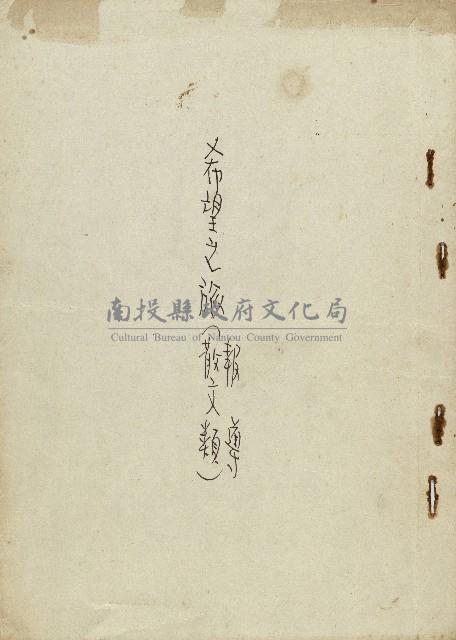 希望之旅(散文類)
報導
南投縣政府文化局
Cultural Bureau of Nantou County Government